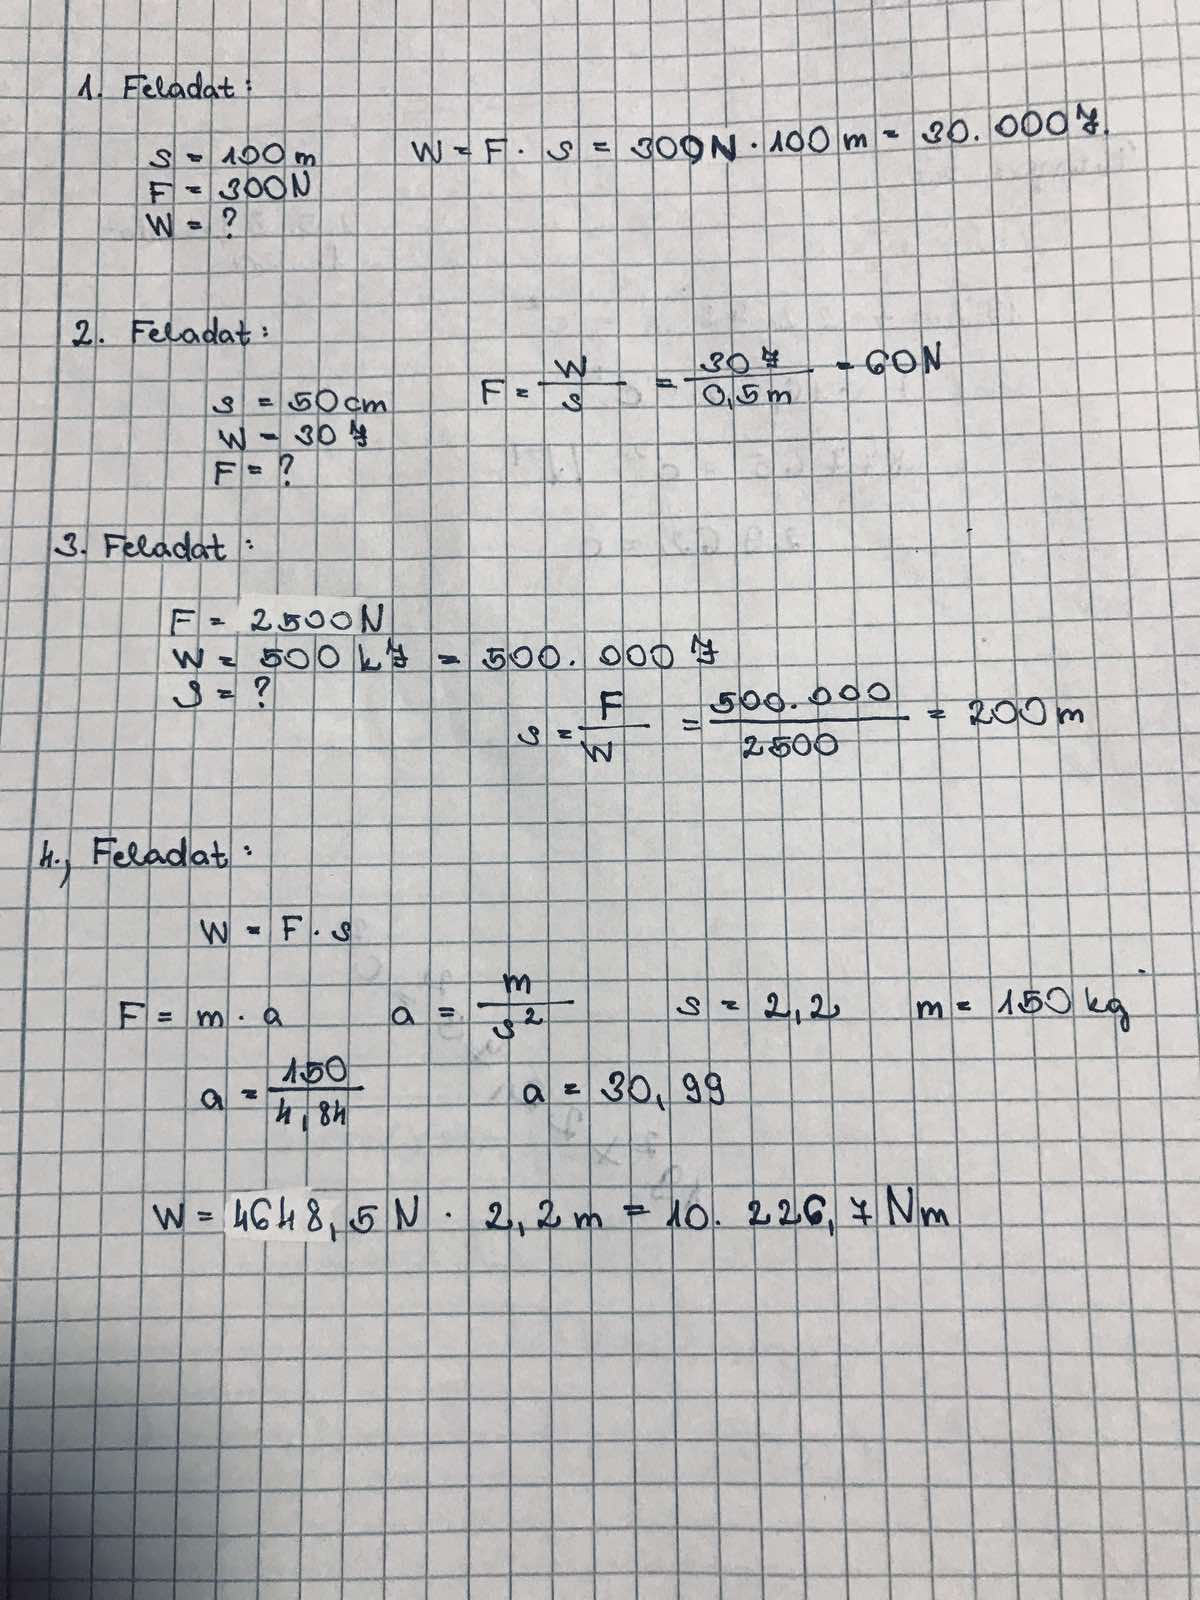 1. Feladat:
s = 100m    W = F · s = 300N · 100m = 30.000J.
F = 300N
W = ?
2. Feladat:
s = 50cm    F = W/s = 30J/0,5m = 60N
W = 30J
F = ?
3. Feladat:
F = 2500N
W = 500kJ = 500.000J
S = ?
s = F/W = 500.000/2500 = 200m
4., Feladat:
W = F · s
F = m · a    a = m/s²    s = 2,2    m = 150kg
a = 150/4,84    a = 30,99
W = 4648,5N · 2,2m = 10.226,7Nm